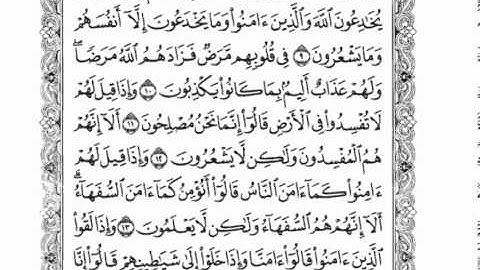 يُخَٰدِعُونَ ٱللَّهَ وَٱلَّذِينَ ءَامَنُوا۟ وَمَا يَخْدَعُونَ إِلَّآ أَنفُسَهُمْ
وَمَا يَشْعُرُونَ ٩ فِى قُلُوبِهِم مَّرَضٌ فَزَادَهُمُ ٱللَّهُ مَرَضًا ۖ
وَلَهُمْ عَذَابٌ أَلِيمٌۢ بِمَا كَانُوا۟ يَكْذِبُونَ ١٠ وَإِذَا قِيلَ لَهُمْ
لَا تُفْسِدُوا۟ فِى ٱلْأَرْضِ قَالُوٓا۟ إِنَّمَا نَحْنُ مُصْلِحُونَ ١١ أَلَآ إِنَّهُمْ
هُمُ ٱلْمُفْسِدُونَ وَلَٰكِن لَّا يَشْعُرُونَ ١٢ وَإِذَا قِيلَ لَهُمْ
ءَامِنُوا۟ كَمَآ ءَامَنَ ٱلنَّاسُ قَالُوٓا۟ أَنُؤْمِنُ كَمَآ ءَامَنَ ٱلسُّفَهَآءُ ۗ
أَلَآ إِنَّهُمْ هُمُ ٱلسُّفَهَآءُ وَلَٰكِن لَّا يَعْلَمُونَ ١٣ وَإِذَا لَقُوا۟
ٱلَّذِينَ ءَامَنُوا۟ قَالُوٓا۟ ءَامَنَّا وَإِذَا خَلَوْا۟ إِلَىٰ شَيَٰطِينِهِمْ قَالُوٓا۟ إِنَّا